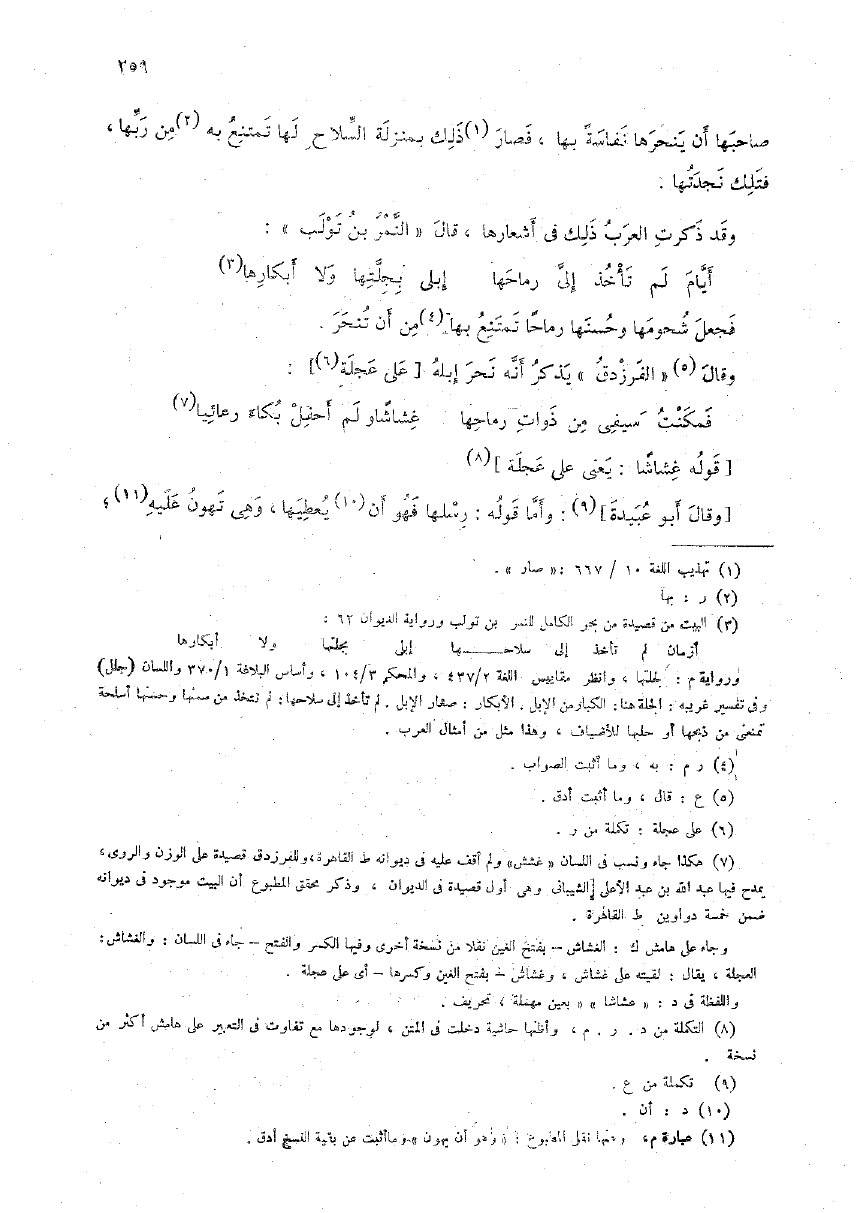 ٢٥٩
صاحبَها أَن يَنحَرَها نَفاسَةً بها ، فَصارَ (١) ذَلِك بمنزلَة السِّلاحِ لَها تَمتنِعُ به (٢) مِن رَبِّها ،
فتَلِك نَجدَتُها .
وقَد ذَكرتِ العرَبُ ذَلِك فى أَشعارِها ، قالَ « النَّمْرُ بنُ تَوْلَب » :
أَيَّامَ لَم تَأْخُذ إِلىَّ رماحَها إِبلى بِجِلَّتِها وَلا أَبكارِها (٣)
فَجعلَ شُحومَها وحُسنَها رماحًا تَمتَنِعُ بها (٤) مِن أَن تُنحَرَ .
وقالَ (٥) « الفَرزدقُ » يَذكرُ أَنَّه نَحرَ إِبلهُ [ عَلى عَجلَة (٦) ] :
فَمكَنْتُ سَيفِى مِن ذَواتِ رماحِها غِشاشًا و لَم أَحفِلْ بُكاءَ رعائِيا (٧)
[ قَولُه غِشاشًا : يَعْنى على عَجلَة ] (٨)
[ وقالَ أَبو عُبَيدةَ ] (٩) : وأَمَّا قَولُه : رِسْلها فَهُو أَن (١٠) يُعطِيَها ، وَهِى تَهونُ عَلَيهِ (١١) ؛
(١) تهذيب اللغة ١٠ / ٦٦٧ : « صار » .
(٢) ر : بها
(٣) البيت من قصيدة من بحر الكامل للنمر بن تولب ورواية الديوان ٦٢ :
أزمان لم تأخذ إلى سلاحـــها إبلى بجلتها ولا أبكارها
ورواية م : لجلتها ، وانظر مقاييس اللغة ٤٣٧/٢ ، والمحكم ١٠٤/٣ ، وأساس البلاغة ٣٧٠/١ واللسان (جلل)
وفى تفسير غريبه : الجلة هنا : الكبار من الإبل . الأبكار : صغار الإبل . لم تأخذ إلى سلاحها : لم تتخذ من سمنها وحسنها أسلحة
تمنعنى من ذبحها أو حلبها للأضياف ، وهذا مثل من أمثال العرب .
(٤) ر م : به ، وما أثبت الصواب .
(٥) ع : قال ، وما أثبت أدق .
(٦) على عجلة : تكملة من ر .
(٧) هكذا جاء ونسب فى اللسان « غشش » ولم أقف عليه فى ديوانه ط القاهرة ، وللفرزدق قصيدة على الوزن والروى ،
يمدح فيها عبد الله بن عبد الأعلى الشيبانى وهى أول قصيدة فى الديوان ، وذكر محقق المطبوع أن البيت موجود فى ديوانه
ضمن خمسة دواوين ط القاهرة .
وجاء على هامش ك : الغشاش – بفتح الغين نقلا من نسخة أخرى وفيها الكسر والفتح – جاء فى اللسان : والغشاش :
العجلة ، يقال : لقيته على غشاش ، وغشاش – بفتح الغين وكسرها – أى على عجلة .
واللفظة فى د : « عشاشا » » بعين مهملة ، تحريف .
(٨) التكملة من د . ر . م ، وأظنها حاشية دخلت فى المتن ، لوجودها مع تفاوت فى التعبير على هامش أكثر من
نسخة .
(٩) تكملة من ع .
(١٠) د : أن .
(١١) عبارة م، وعنها نقل المطبوع : « وهو أن يهون » وما أثبت عن بقية النسخ أدق .